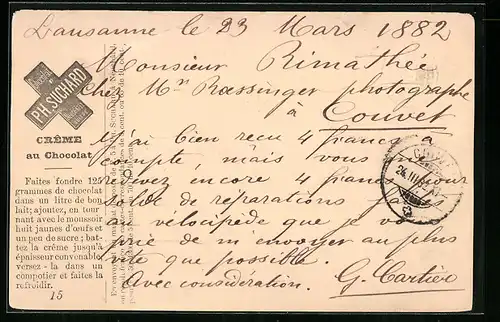 Lausanne le 23 Mars 1882
Monsieur Rimathée
chez Mr Rossinger photographe
à
Couvet
J'ai bien reçu 4 francs à
compte, mais vous me
redevez encore 4 francs pour
solde de réparations faites
au vélocipède que je vous
prie de m'envoyer au plus
vite que possible.
Avec considération. G. Cartier
PH. SUCHARD
CRÊME
au Chocolat
Faites fondre 125
grammes de chocolat
dans un litre de bon
lait; ajoutez, en tour
nant avec le moussoir
huit jaunes d'œufs et
un peu de sucre; bat
tez la crême jusqu'à
épaisseur convenable,
versez-la dans un
compotier et faites la
refroidir.
15